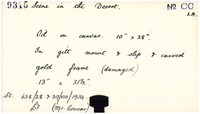 9315 Scene in the Desert. No CC
L.R.
Oil on canvas. 10" x 28".
In gilt mount & slip & carved
gold frame (damaged)
13" x 31½"
St. 628/28 & 20/1934
£3 (Mr. Cowan)